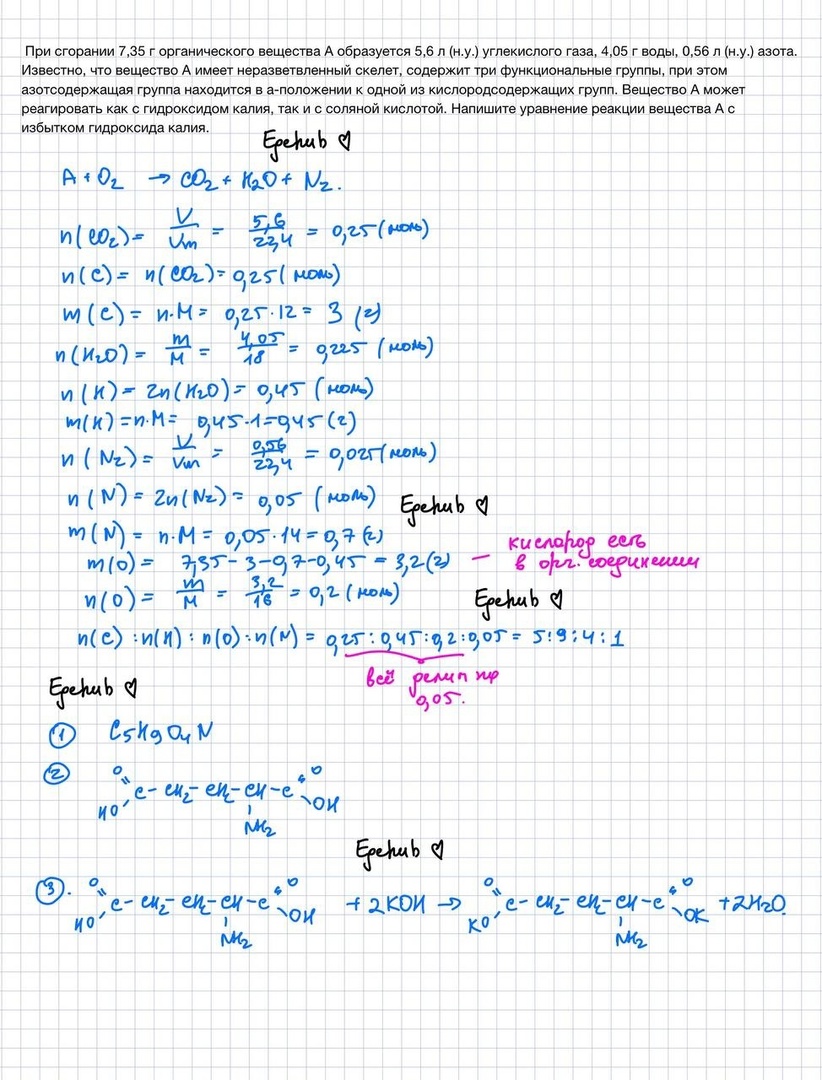 При сгорании 7,35 г органического вещества А образуется 5,6 л (н.у.) углекислого газа, 4,05 г воды, 0,56 л (н.у.) азота.
Известно, что вещество А имеет неразветвленный скелет, содержит три функциональные группы, при этом
азотсодержащая группа находится в a-положении к одной из кислородсодержащих групп. Вещество А может
реагировать как с гидроксидом калия, так и с соляной кислотой. Напишите уравнение реакции вещества А с
избытком гидроксида калия.
A + O2 → CO2 + H2O + N2.
n(CO2) = V/Vm = 5,6/22,4 = 0,25 (моль)
n(C) = n(CO2) = 0,25 (моль)
m(C) = n·M = 0,25·12 = 3 (г)
n(H2O) = m/M = 4,05/18 = 0,225 (моль)
n(H) = 2n(H2O) = 0,45 (моль)
m(H) = n·M = 0,45·1=0,45 (г)
n(N2) = V/Vm = 0,56/22,4 = 0,025 (моль)
n(N) = 2n(N2) = 0,05 (моль)
m(N) = n·M = 0,05·14 = 0,7 (г)
m(O) = 7,35 - 3 - 0,7 - 0,45 = 3,2 (г) — кислород есть
в орг. соединении
n(O) = m/M = 3,2/16 = 0,2 (моль)
n(C) : n(H) : n(O) : n(N) = 0,25 : 0,45 : 0,2 : 0,05 = 5:9:4:1
всё
0,05.
1 C5H9O4N
2 O
HO C - CH2 - CH2 - CH - C O
OH
NH2
3. HO O C - CH2 - CH2 - CH - C O OH + 2KOH → KO O C - CH2 - CH2 - CH - C O OK + 2H2O.
NH2 NH2